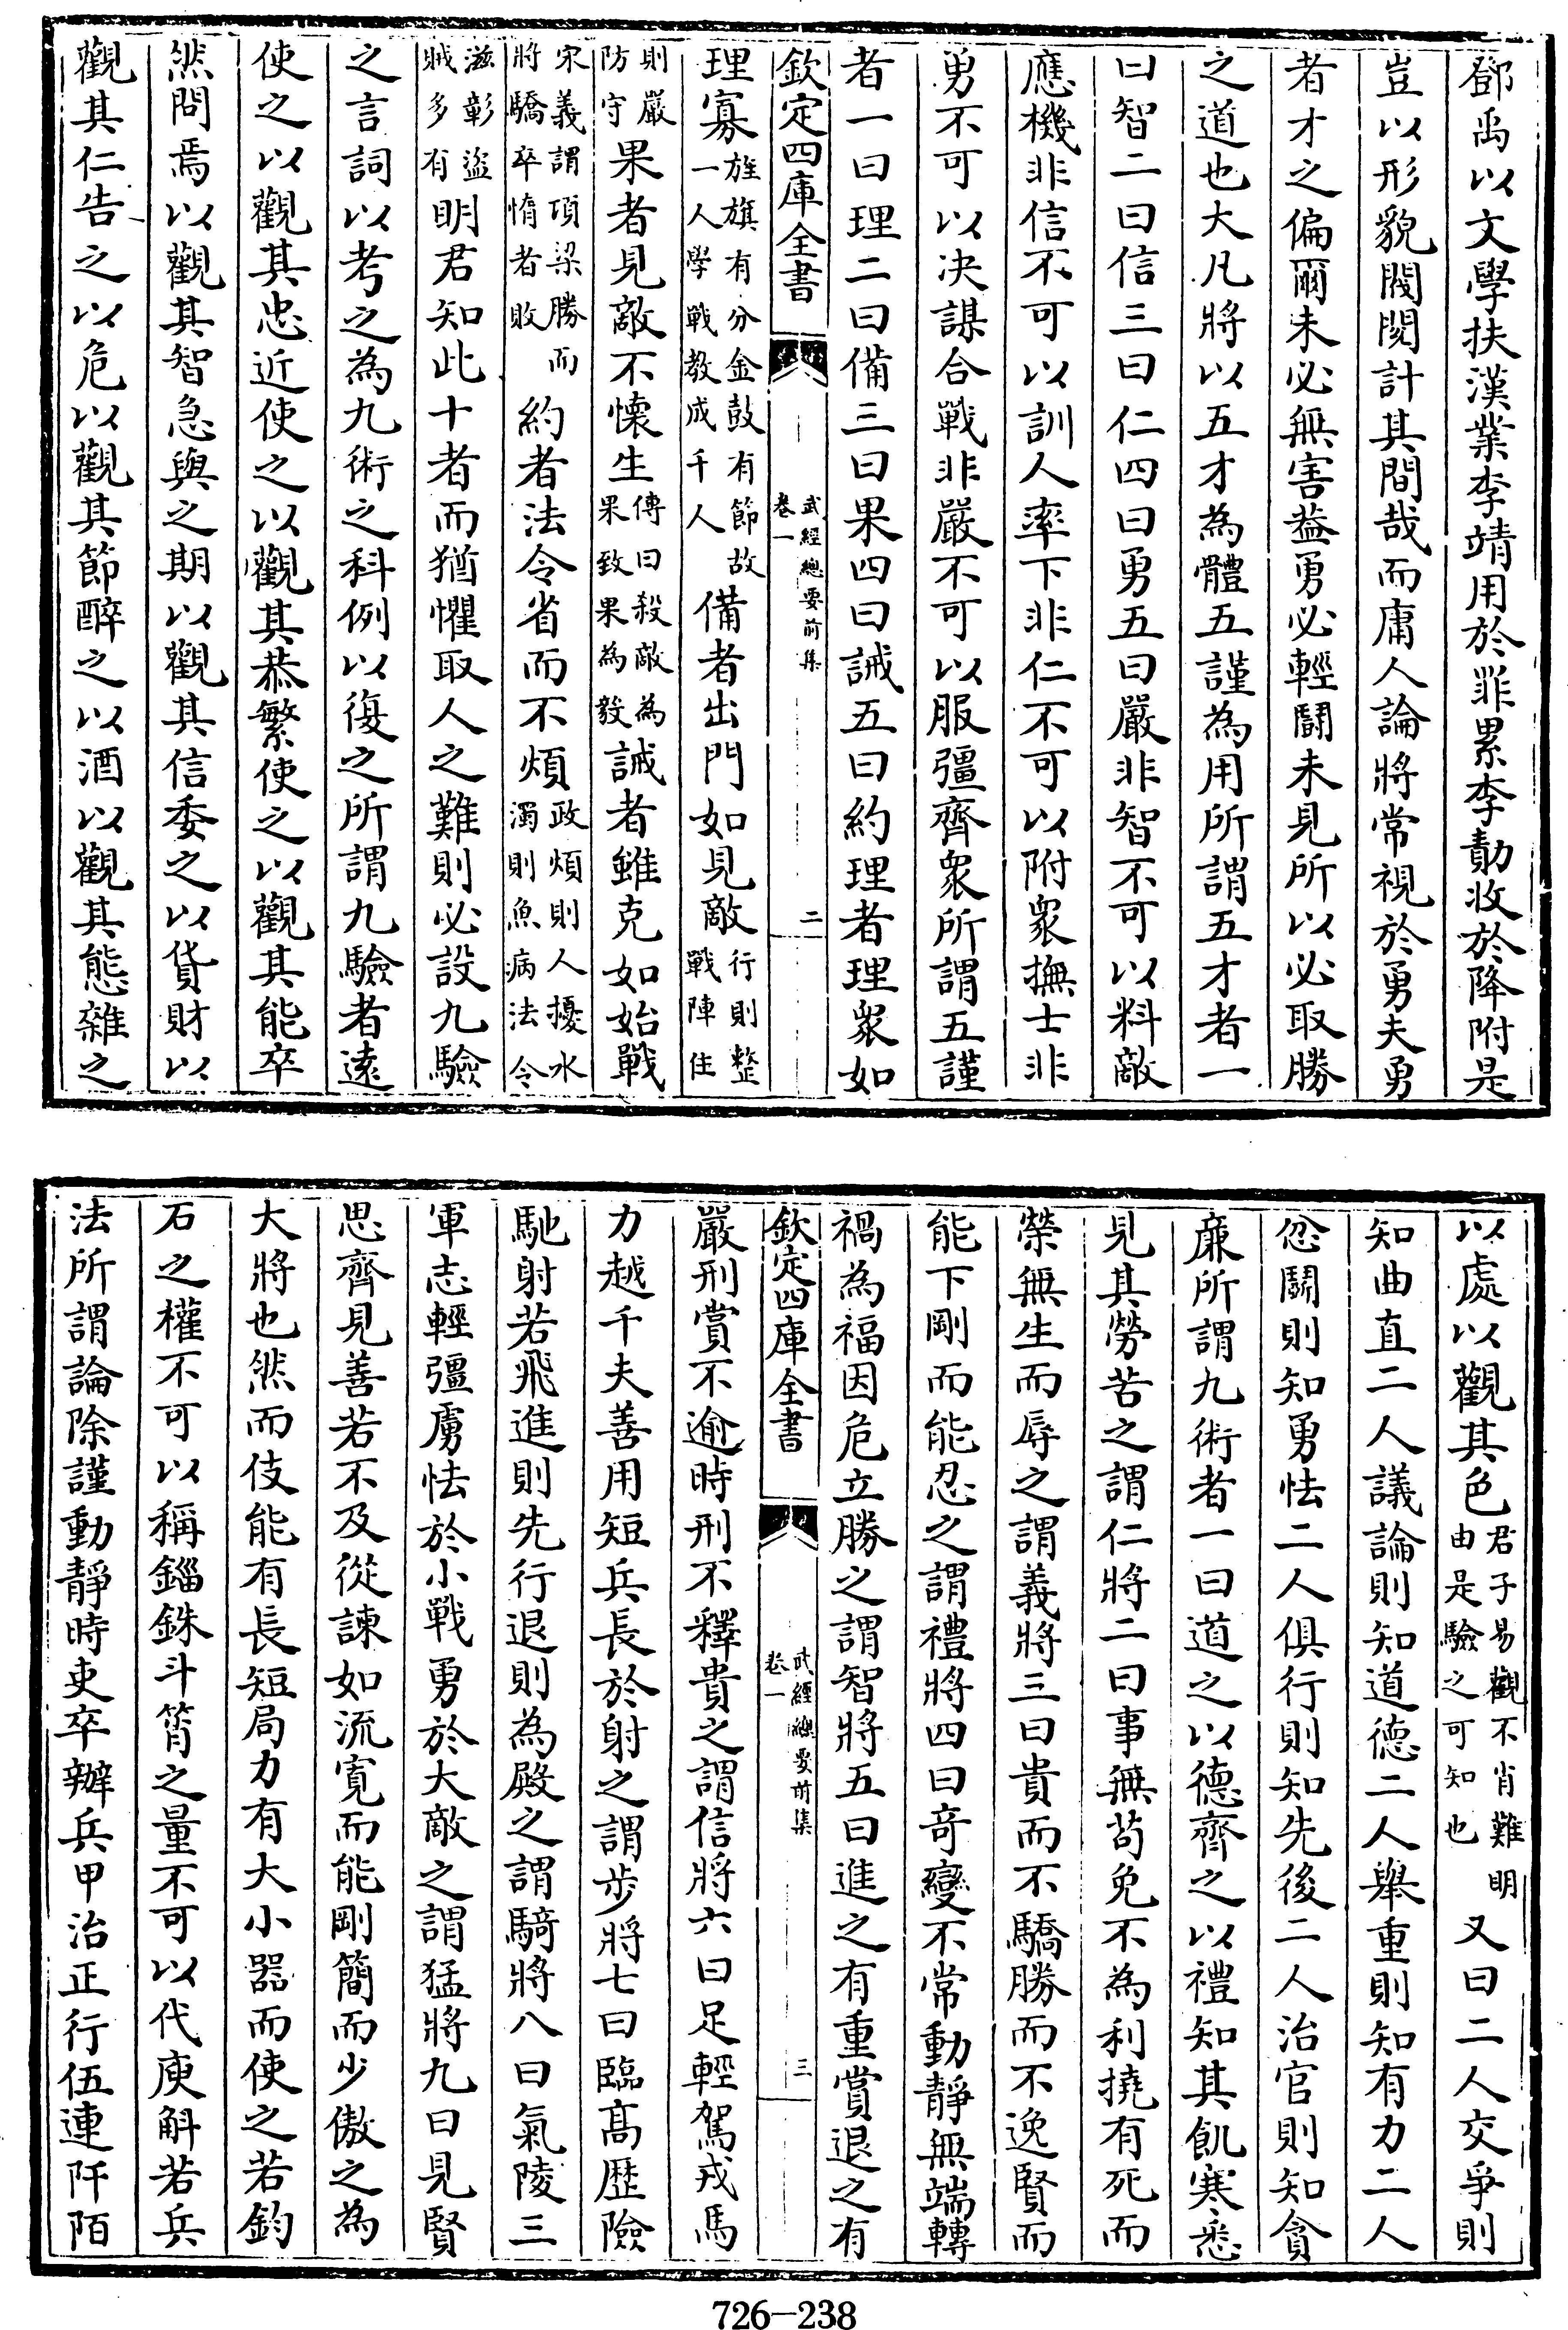 鄧禹以文學扶漢業李靖用於罪累李勣收於降附是
豈以形貌閥閱計其間哉而庸人論將常視於勇夫勇
者才之偏爾未必無害葢勇必輕鬭未見所以必取勝
之道也大凡將以五才為體五謹為用所謂五才者一
曰智二曰信三曰仁四曰勇五曰嚴非智不可以料敵
應機非信不可以訓人率下非仁不可以附衆撫士非
勇不可以决謀合戰非嚴不可以服彊齊衆所謂五謹
者一曰理二曰備三曰果四曰誡五曰約理者理衆如
欽定四庫全書
武經總要前集
卷一
二
理寡旌旗有分金鼓有節故一人學戰教成千人備者出門如見敵行則整戰陣住
則嚴防守果者見敵不懷生傳曰殺敵為果致果為毅誡者雖克如始戰
宋義謂項梁勝而將驕卒惰者敗約者法令省而不煩政煩則人擾水濁則魚病法令
滋彰盜賊多有明君知此十者而猶懼取人之難則必設九驗
之言詞以考之為九術之科例以復之所謂九驗者遠
使之以觀其忠近使之以觀其恭繁使之以觀其能卒
然問焉以觀其智急與之期以觀其信委之以貨財以
觀其仁告之以危以觀其節醉之以酒以觀其態雜之
以處以觀其色君子易觀不肖難明由是驗之可知也又曰二人交爭則
知曲直二人議論則知道德二人舉重則知有力二人
忿鬭則知勇怯二人俱行則知先後二人治官則知貪
廉所謂九術者一曰道之以德齊之以禮知其飢寒悉
見其勞苦之謂仁將二曰事無茍免不為利撓有死而
榮無生而辱之謂義將三曰貴而不驕勝而不逸賢而
能下剛而能忍之謂禮將四曰奇變不常動靜無端轉
禍為福因危立勝之謂智將五曰進之有重賞退之有
欽定四庫全書
武經總要前集
卷一
三
嚴刑賞不逾時刑不釋貴之謂信將六曰足輕駕戎馬
力越千夫善用短兵長於射之謂步將七曰臨髙歴險
馳射若飛進則先行退則為殿之謂騎將八曰氣陵三
軍志輕彊虜怯於小戰勇於大敵之謂猛將九曰見賢
思齊見善若不及從諫如流寬而能剛簡而少傲之為
大將也然而伎能有長短局力有大小器而使之若鈞
石之權不可以稱錙銖斗筲之量不可以代庾斛若兵
法所謂論除謹動靜時吏卒辦兵甲治正行伍連阡陌
726-238